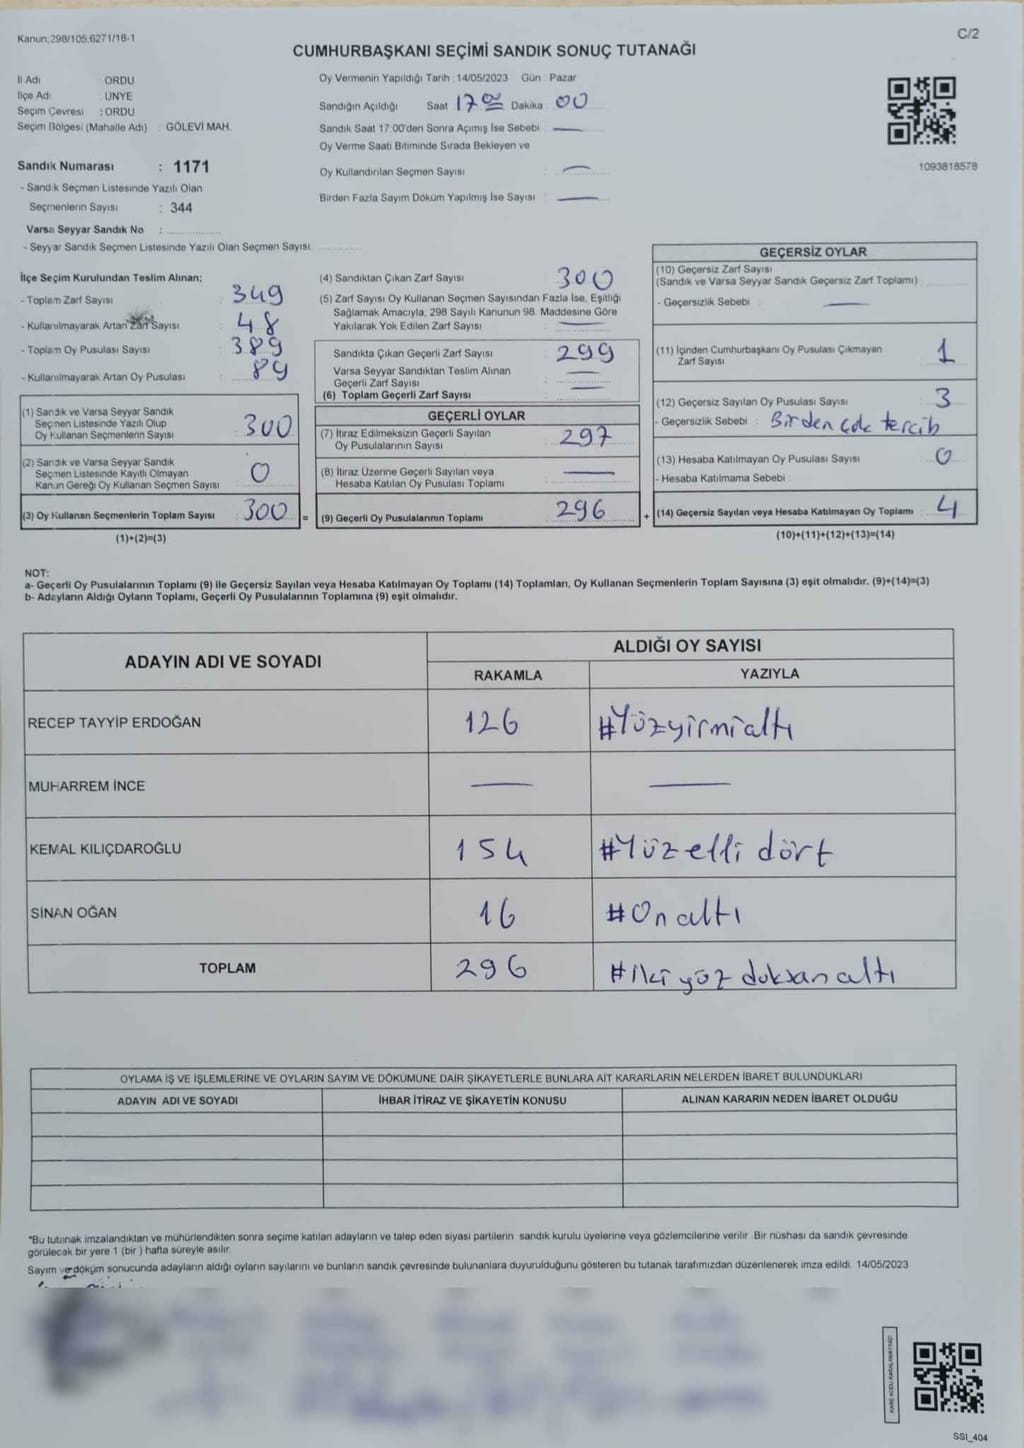 Kanun;298/105,6271/18-1
C/2
CUMHURBAŞKANI SEÇİMİ SANDIK SONUÇ TUTANAĞI
İl Adı ORDU
İlçe Adı ÜNYE
Seçim Çevresi : ORDU
Seçim Bölgesi (Mahalle Adı) : GÖLEVİ MAH.
Sandık Numarası : 1171
- Sandık Seçmen Listesinde Yazılı Olan
Seçmenlerin Sayısı : 344
Varsa Seyyar Sandık No :
- Seyyar Sandık Seçmen Listesinde Yazılı Olan Seçmen Sayısı
Oy Vermenin Yapıldığı Tarih :14/05/2023 Gün : Pazar
Sandığın Açıldığı Saat 17 00 Dakika 00
Sandık Saat 17:00'den Sonra Açımış İse Sebebi : —
Oy Verme Saati Bitiminde Sırada Bekleyen ve
Oy Kullandırılan Seçmen Sayısı : —
Birden Fazla Sayım Döküm Yapılmış İse Sayısı : —
1093818578
İlçe Seçim Kurulundan Teslim Alınan;
- Toplam Zarf Sayısı : 349
- Kullanılmayarak Artan Zarf Sayısı : 48
- Toplam Oy Pusulası Sayısı : 389
- Kullanılmayarak Artan Oy Pusulası : 89
(1) Sandık ve Varsa Seyyar Sandık
Seçmen Listesinde Yazılı Olup
Oy Kullanan Seçmenlerin Sayısı : 300
(2) Sandık ve Varsa Seyyar Sandık
Seçmen Listesinde Kayıtlı Olmayan
Kanun Gereği Oy Kullanan Seçmen Sayısı : 0
(3) Oy Kullanan Seçmenlerin Toplam Sayısı : 300 =
(1)+(2)=(3)
(4) Sandıktan Çıkan Zarf Sayısı : 300
(5) Zarf Sayısı Oy Kullanan Seçmen Sayısından Fazla İse, Eşitliği
Sağlamak Amacıyla, 298 Sayılı Kanunun 98. Maddesine Göre
Yakılarak Yok Edilen Zarf Sayısı : —
Sandıkta Çıkan Geçerli Zarf Sayısı : 299
Varsa Seyyar Sandıktan Teslim Alınan
Geçerli Zarf Sayısı : —
(6) Toplam Geçerli Zarf Sayısı : —
GEÇERLİ OYLAR
(7) İtiraz Edilmeksizin Geçerli Sayılan
Oy Pusulalarının Sayısı : 297
(8) İtiraz Üzerine Geçerli Sayılan veya
Hesaba Katılan Oy Pusulası Toplamı : —
(9) Geçerli Oy Pusulalarının Toplamı : 296 +
GEÇERSİZ OYLAR
(10) Geçersiz Zarf Sayısı
(Sandık ve Varsa Seyyar Sandık Geçersiz Zarf Toplamı)
- Geçersizlik Sebebi : —
(11) İçinden Cumhurbaşkanı Oy Pusulası Çıkmayan
Zarf Sayısı : 1
(12) Geçersiz Sayılan Oy Pusulası Sayısı : 3
- Geçersizlik Sebebi : Birden çok tercib
(13) Hesaba Katılmayan Oy Pusulası Sayısı : 0
- Hesaba Katılmama Sebebi :
(14) Geçersiz Sayılan veya Hesaba Katılmayan Oy Toplamı : 4
(10)+(11)+(12)+(13)=(14)
NOT:
a- Geçerli Oy Pusulalarının Toplamı (9) ile Geçersiz Sayılan veya Hesaba Katılmayan Oy Toplamı (14) Toplamları, Oy Kullanan Seçmenlerin Toplam Sayısına (3) eşit olmalıdır. (9)+(14)=(3)
b- Adayların Aldığı Oyların Toplamı, Geçerli Oy Pusulalarının Toplamına (9) eşit olmalıdır.
ADAYIN ADI VE SOYADI
ALDIĞI OY SAYISI
RAKAMLA YAZIYLA
RECEP TAYYİP ERDOĞAN 126 #Yüzyirmialtı
MUHARREM İNCE — —
KEMAL KILIÇDAROĞLU 154 #Yüzelli dört
SİNAN OĞAN 16 #Onaltı
TOPLAM 296 #İkiyüz doksanaltı
OYLAMA İŞ VE İŞLEMLERİNE VE OYLARIN SAYIM VE DÖKÜMÜNE DAİR ŞİKAYETLERLE BUNLARA AİT KARARLARIN NELERDEN İBARET BULUNDUKLARI
ADAYIN ADI VE SOYADI İHBAR İTİRAZ VE ŞİKAYETİN KONUSU ALINAN KARARIN NEDEN İBARET OLDUĞU
*Bu tutanak imzalandıktan ve mühürlendikten sonra seçime katılan adayların ve talep eden siyasi partilerin sandık kurulu üyelerine veya gözlemcilerine verilir. Bir nüshası da sandık çevresinde
görülecek bir yere 1 (bir) hafta süreyle asılır.
Sayım ve döküm sonucunda adayların aldığı oyların sayılarını ve bunların sandık çevresinde bulunanlara duyurulduğunu gösteren bu tutanak tarafımızdan düzenlenerek imza edildi. 14/05/2023
KARE KODU KARALAMAYINIZ!
SSİ_404